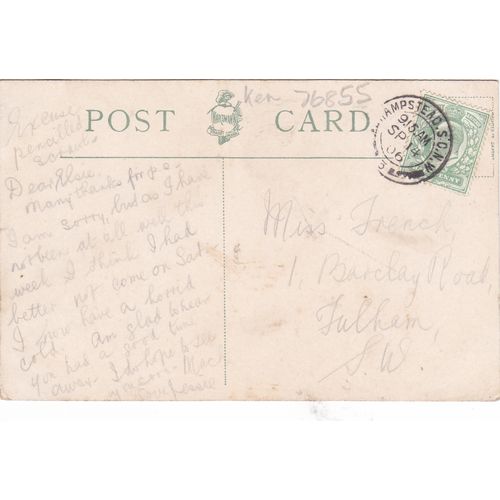 Ken 76855
POST CARD.
HAMPSTEAD S.O.N.W.
9.15 AM
SP 14
06
Excuse
pencilled
scrawl
Dear Elsie.
Many thanks for p.c.
I am sorry, but as I have
not been at all well this
week I think I had
better not come on Sat
I now have a horrid
cold. Am glad to hear
you had a good time
away. I do hope to see
you soon.
Jessie
Miss French,
1, Barclay Road,
Fulham,
S.W